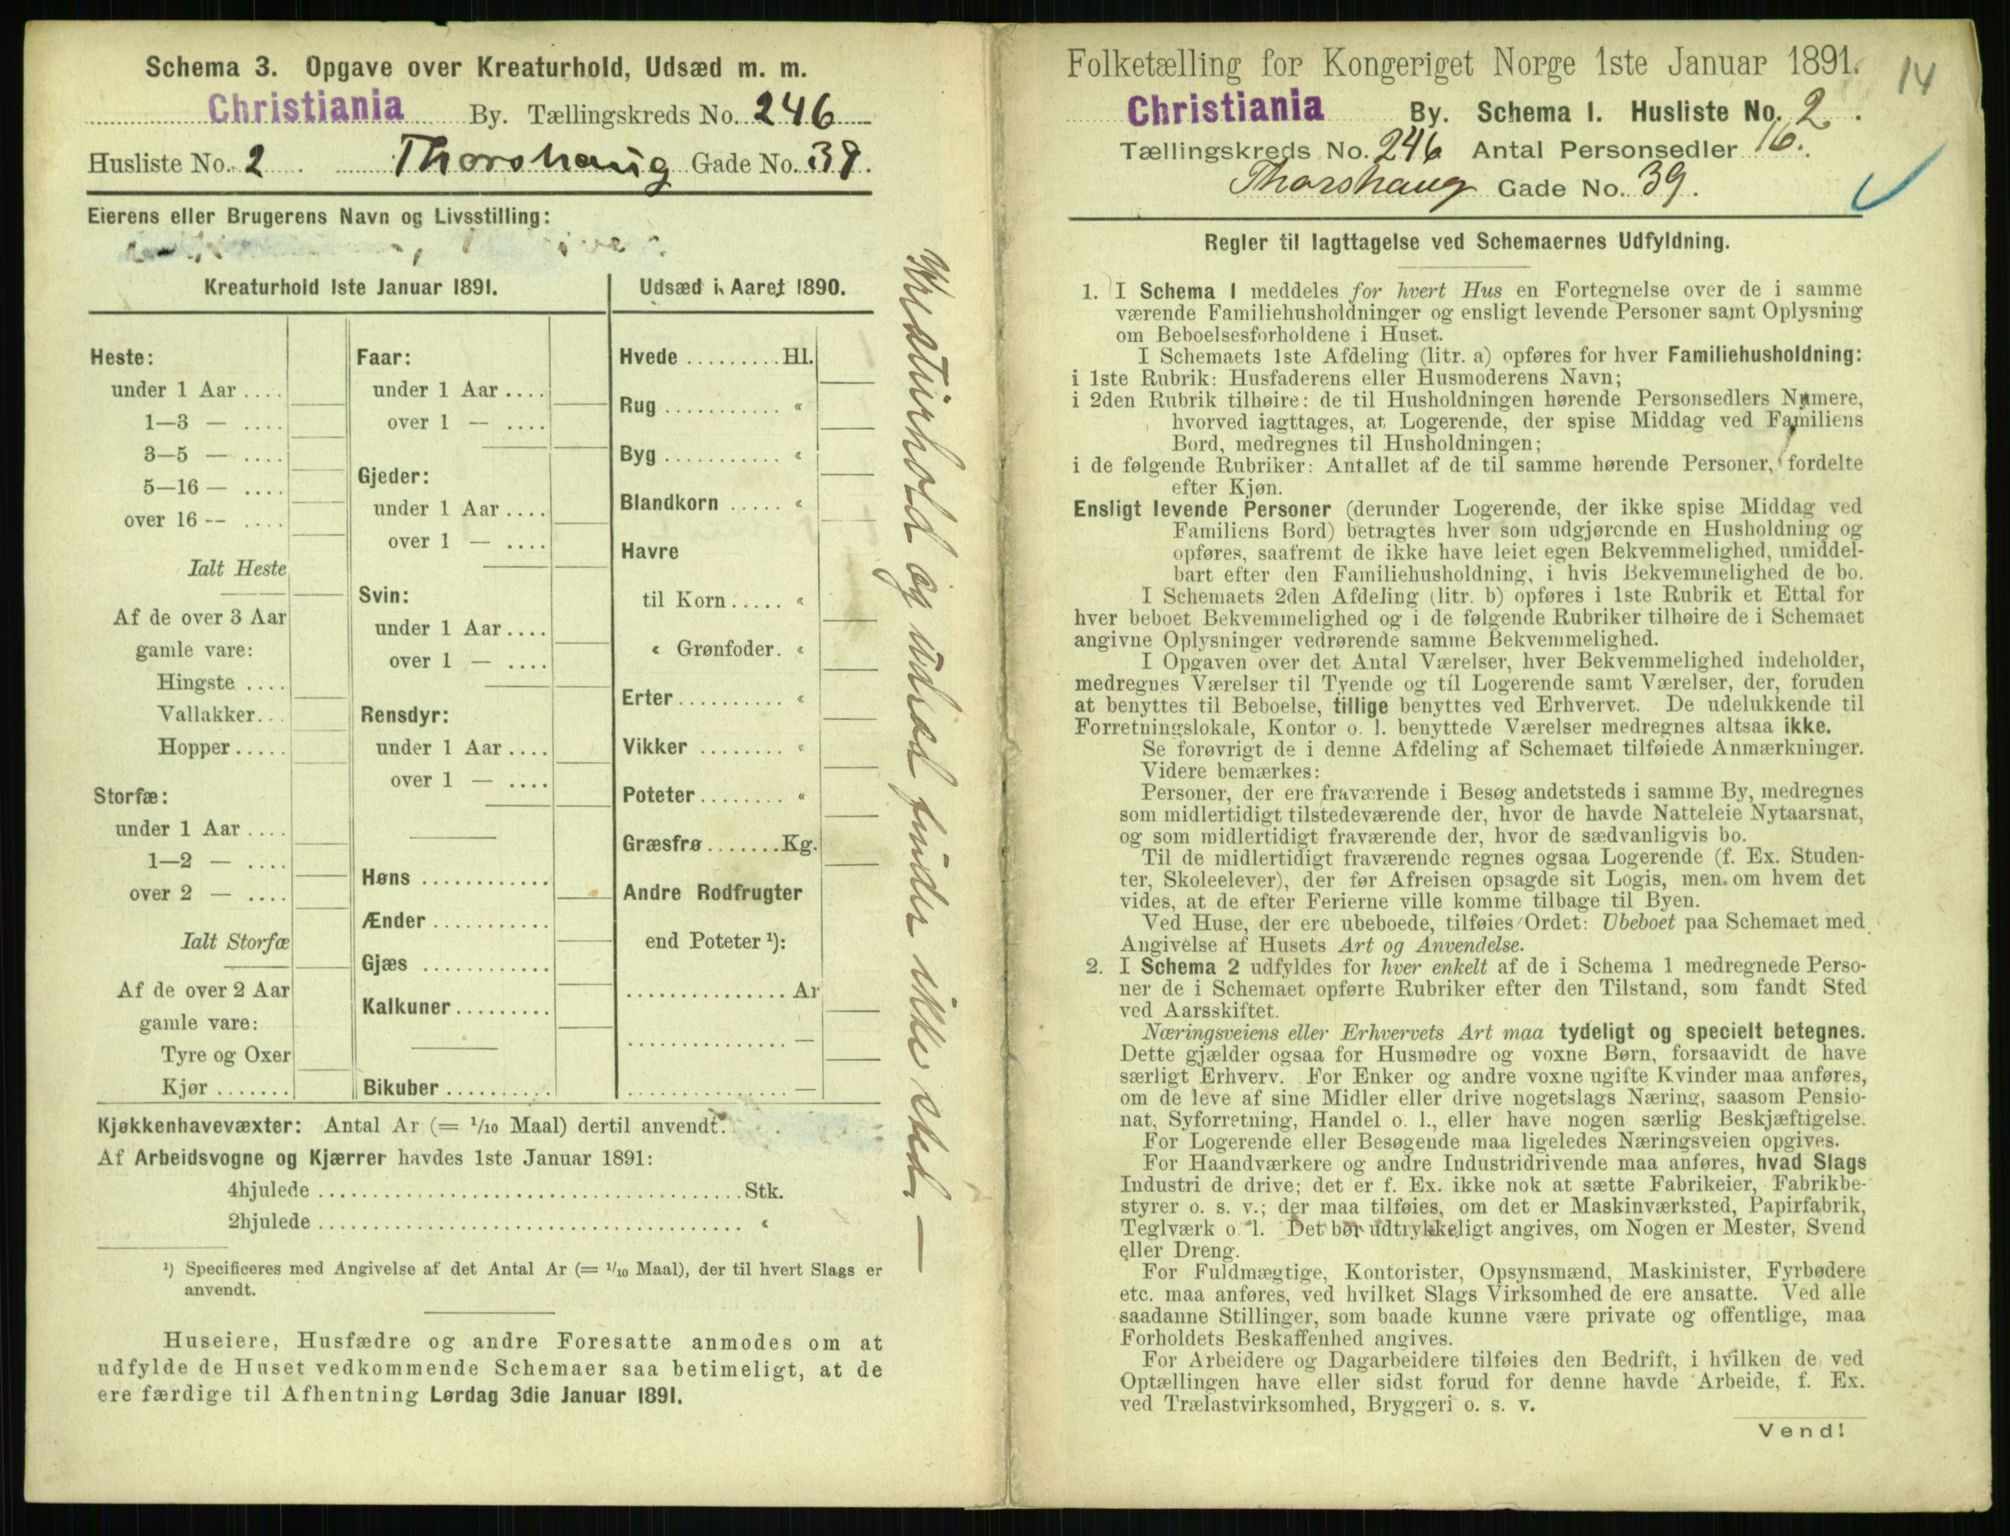 Schema 3. Opgave over Kreaturhold, Udsæd m. m.
Christiania By. Tællingskreds No. 246
Husliste No. 2 Thorshaug Gade No. 39.
Eierens eller Brugerens Navn og Livsstilling:
Kreaturhold 1ste Januar 1891.
Heste:
under 1 Aar ....
1—3 — ....
3—5 — ....
5—16 — ....
over 16 -- ....
Ialt Heste
Af de over 3 Aar
gamle vare:
Hingste ....
Vallakker...
Hopper.....
Storfæ:
under 1 Aar ....
1—2 — ....
over 2 — ....
Ialt Storfæ
Af de over 2 Aar
gamle vare:
Tyre og Oxer
Kjør .......
Faar:
under 1 Aar ....
over 1 — ....
Gjeder:
under 1 Aar ....
over 1 — ....
Svin:
under 1 Aar....
over 1 — ....
Rensdyr:
under 1 Aar ....
over 1 — ....
Høns ............
Ænder ...........
Gjæs ............
Kalkuner.........
Bikuber ..........
Udsæd i Aaret 1890.
Hvede .........Hl.
Rug ........... «
Byg ........... «
Blandkorn ..... «
Havre
til Korn..... «
« Grønfoder. «
Erter.......... «
Vikker ........ «
Poteter........ «
Græsfrø .......Kg.
Andre Rodfrugter
end Poteter ¹):
............... Ar
............... —
............... —
Kreaturhold og udsæd finder ikke sted —
Kjøkkenhavevæxter: Antal Ar (= 1/10 Maal) dertil anvendt.
Af Arbeidsvogne og Kjærrer havdes 1ste Januar 1891:
4hjulede ........................................ Stk.
2hjulede ........................................ «
¹) Specificeres med Angivelse af det Antal Ar (= 1/10 Maal), der til hvert Slags er
anvendt.
Huseiere, Husfædre og andre Foresatte anmodes om at
udfylde de Huset vedkommende Schemaer saa betimeligt, at de
ere færdige til Afhentning Lørdag 3die Januar 1891.
Folketælling for Kongeriget Norge 1ste Januar 1891.
14
Christiania By. Schema 1. Husliste No. 2.
Tællingskreds No. 246 Antal Personsedler 16.
Thorshaug Gade No. 39.
Regler til Iagttagelse ved Schemaernes Udfyldning.
1. I Schema 1 meddeles for hvert Hus en Fortegnelse over de i samme
værende Familiehusholdninger og ensligt levende Personer samt Oplysning
om Beboelsesforholdene i Huset.
I Schemaets 1ste Afdeling (litr. a) opføres for hver Familiehusholdning:
i 1ste Rubrik: Husfaderens eller Husmoderens Navn;
i 2den Rubrik tilhøire: de til Husholdningen hørende Personsedlers Numere,
hvorved iagttages, at Logerende, der spise Middag ved Familiens
Bord, medregnes til Husholdningen;
i de følgende Rubriker: Antallet af de til samme hørende Personer, fordelte
efter Kjøn.
Ensligt levende Personer (derunder Logerende, der ikke spise Middag ved
Familiens Bord) betragtes hver som udgjørende en Husholdning og
opføres, saafremt de ikke have leiet egen Bekvemmelighed, umiddel-
bart efter den Familiehusholdning, i hvis Bekvemmelighed de bo.
I Schemaets 2den Afdeling (litr. b) opføres i 1ste Rubrik et Ettal for
hver beboet Bekvemmelighed og i de følgende Rubriker tilhøire de i Schemaet
angivne Oplysninger vedrørende samme Bekvemmelighed.
I Opgaven over det Antal Værelser, hver Bekvemmelighed indeholder,
medregnes Værelser til Tyende og til Logerende samt Værelser, der, foruden
at benyttes til Beboelse, tillige benyttes ved Erhvervet. De udelukkende til
Forretningslokale, Kontor o. l. benyttede Værelser medregnes altsaa ikke.
Se forøvrigt de i denne Afdeling af Schemaet tilføiede Anmærkninger.
Videre bemærkes:
Personer, der ere fraværende i Besøg andetsteds i samme By, medregnes
som midlertidigt tilstedeværende der, hvor de havde Natteleie Nytaarsnat,
og som midlertidigt fraværende der, hvor de sædvanligvis bo.
Til de midlertidigt fraværende regnes ogsaa Logerende (f. Ex. Studen-
ter, Skoleelever), der før Afreisen opsagde sit Logis, men om hvem det
vides, at de efter Ferierne ville komme tilbage til Byen.
Ved Huse, der ere ubeboede, tilføies Ordet: Ubeboet paa Schemaet med
Angivelse af Husets Art og Anvendelse.
2. I Schema 2 udfyldes for hver enkelt af de i Schema 1 medregnede Perso-
ner de i Schemaet opførte Rubriker efter den Tilstand, som fandt Sted
ved Aarsskiftet.
Næringsveiens eller Erhvervets Art maa tydeligt og specielt betegnes.
Dette gjælder ogsaa for Husmødre og voxne Børn, forsaavidt de have
særligt Erhverv. For Enker og andre voxne ugifte Kvinder maa anføres,
om de leve af sine Midler eller drive nogetslags Næring, saasom Pensio-
nat, Syforretning, Handel o. l., eller have nogen særlig Beskjæftigelse.
For Logerende eller Besøgende maa ligeledes Næringsveien opgives.
For Haandværkere og andre Industridrivende maa anføres, hvad Slags
Industri de drive; det er f. Ex. ikke nok at sætte Fabrikeier, Fabrikbe-
styrer o. s. v.; der maa tilføies, om det er Maskinværksted, Papirfabrik,
Teglværk o. l. Det bør udtrykkeligt angives, om Nogen er Mester, Svend
eller Dreng.
For Fuldmægtige, Kontorister, Opsynsmænd, Maskinister, Fyrbødere
etc. maa anføres, ved hvilket Slags Virksomhed de ere ansatte. Ved alle
saadanne Stillinger, som baade kunne være private og offentlige, maa
Forholdets Beskaffenhed angives.
For Arbeidere og Dagarbeidere tilføies den Bedrift, i hvilken de ved
Optællingen have eller sidst forud for denne havde Arbeide, f. Ex.
ved Trælastvirksomhed, Bryggeri o. s. v.
Vend!